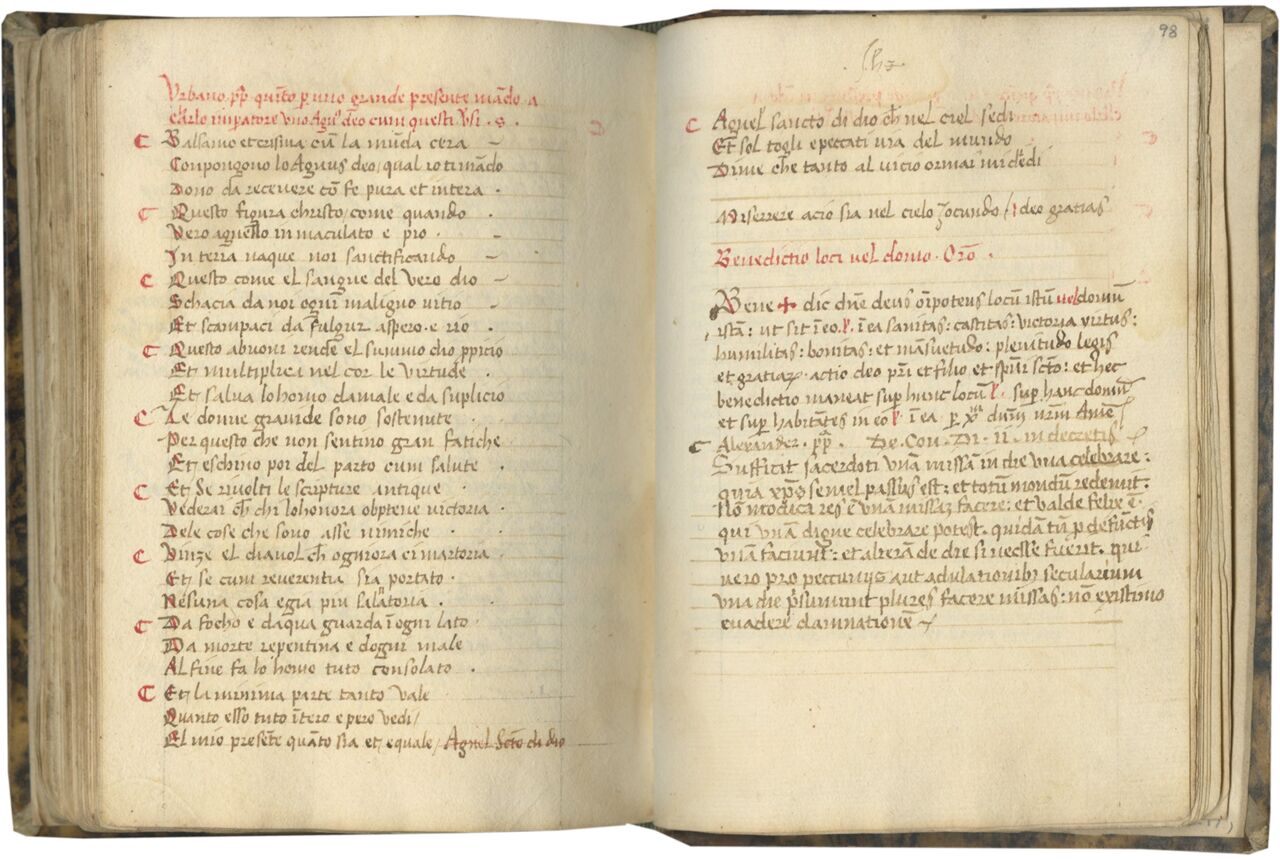 Vrbano pp quīto p uno grande presente mādo a
Charlo imperatore uno Agnꝰ deo cum questi Vsi . s .
Balsamo et crisma cū la mūda cera
Conpongono lo Agnus deo / qual io ti mādo
Dono da recevere cō fe pura et intera .
Questo figura christo / come quando .
Vero agnello inmaculato e pio .
In terra naque noi sanctificando
Questo come el sangue del vero dio
Schacia da noi ognū maligno vitio
Et scampaci da fulgur aspero e rio .
Questo a buoni rende el summo dio ppicio
Et multiplica nel cor le virtude
Et salva lohomo da male e da suplicio
Le donne gravide sono sostenute
Per questo che non sentino gran fatiche
Et eschino poi del parto cum salute .
Et Se rivolti le scripture antique
Vederai ch̄ chi lohonora obptene victoria
Dele cose che sono asse nimiche
Vinze el diavol ch̄ ognora ci martoria
Et se cum reverentia sia portato .
Nesuna cosa e gia piu salatoria .
Da focho e daqua guarda ī ogni lato .
Da morte repentina e dogni male
Al fine fa lo homo tuto consolato .
Et la minima parte tanto vale
Quanto esso tuto ītero e pero vedi /
El mio presēte quāto sia et equale / Agnel Sctō di dio
98
Agnel sancto di dio ch̄ nel ciel sedi
Et sol togli e peccati via del mundo
Dime che tanto al vicio ormai mi diedi
Miserrere acio sia nel cielo Jocundo / deo gratias
Benedictio loci vel domo . Orō .
Bene ✠ dic dn̄e deus oīpotens locū istū vel domū
istā : ut sit ī eo l. ī ea sanitas : castitas : victoria virtus :
humilitas : bonitas : et māsuetudo : plenitudo legis
et gratiaꝝ actio deo pr̄i et filio et spūi scto : et hec
benedictio maneat sup hunc locū l. sup hanc domū
et sup habitātes in eo l. ī ea p xp̄m dnm nr̄m Amē
Alexander . pp . De . Con . Di . ii . in decretis
Sufficit sacerdoti vnā missā in die vna celebrare :
quia xp̄s semel passus est : et totū mondū redemit .
Nō modica res ē vnā missaꝫ facere : et valde felix ē
qui vnā digne celebrare potest . quidā tn̄ p defūctis
vnā faciunt : et alterā de die si necesse fuerit . qui
vero pro peccuniis aut adulationibꝰ secularium
vna die p̄sumunt plures facere missas : nō existimo
evadere damnatione